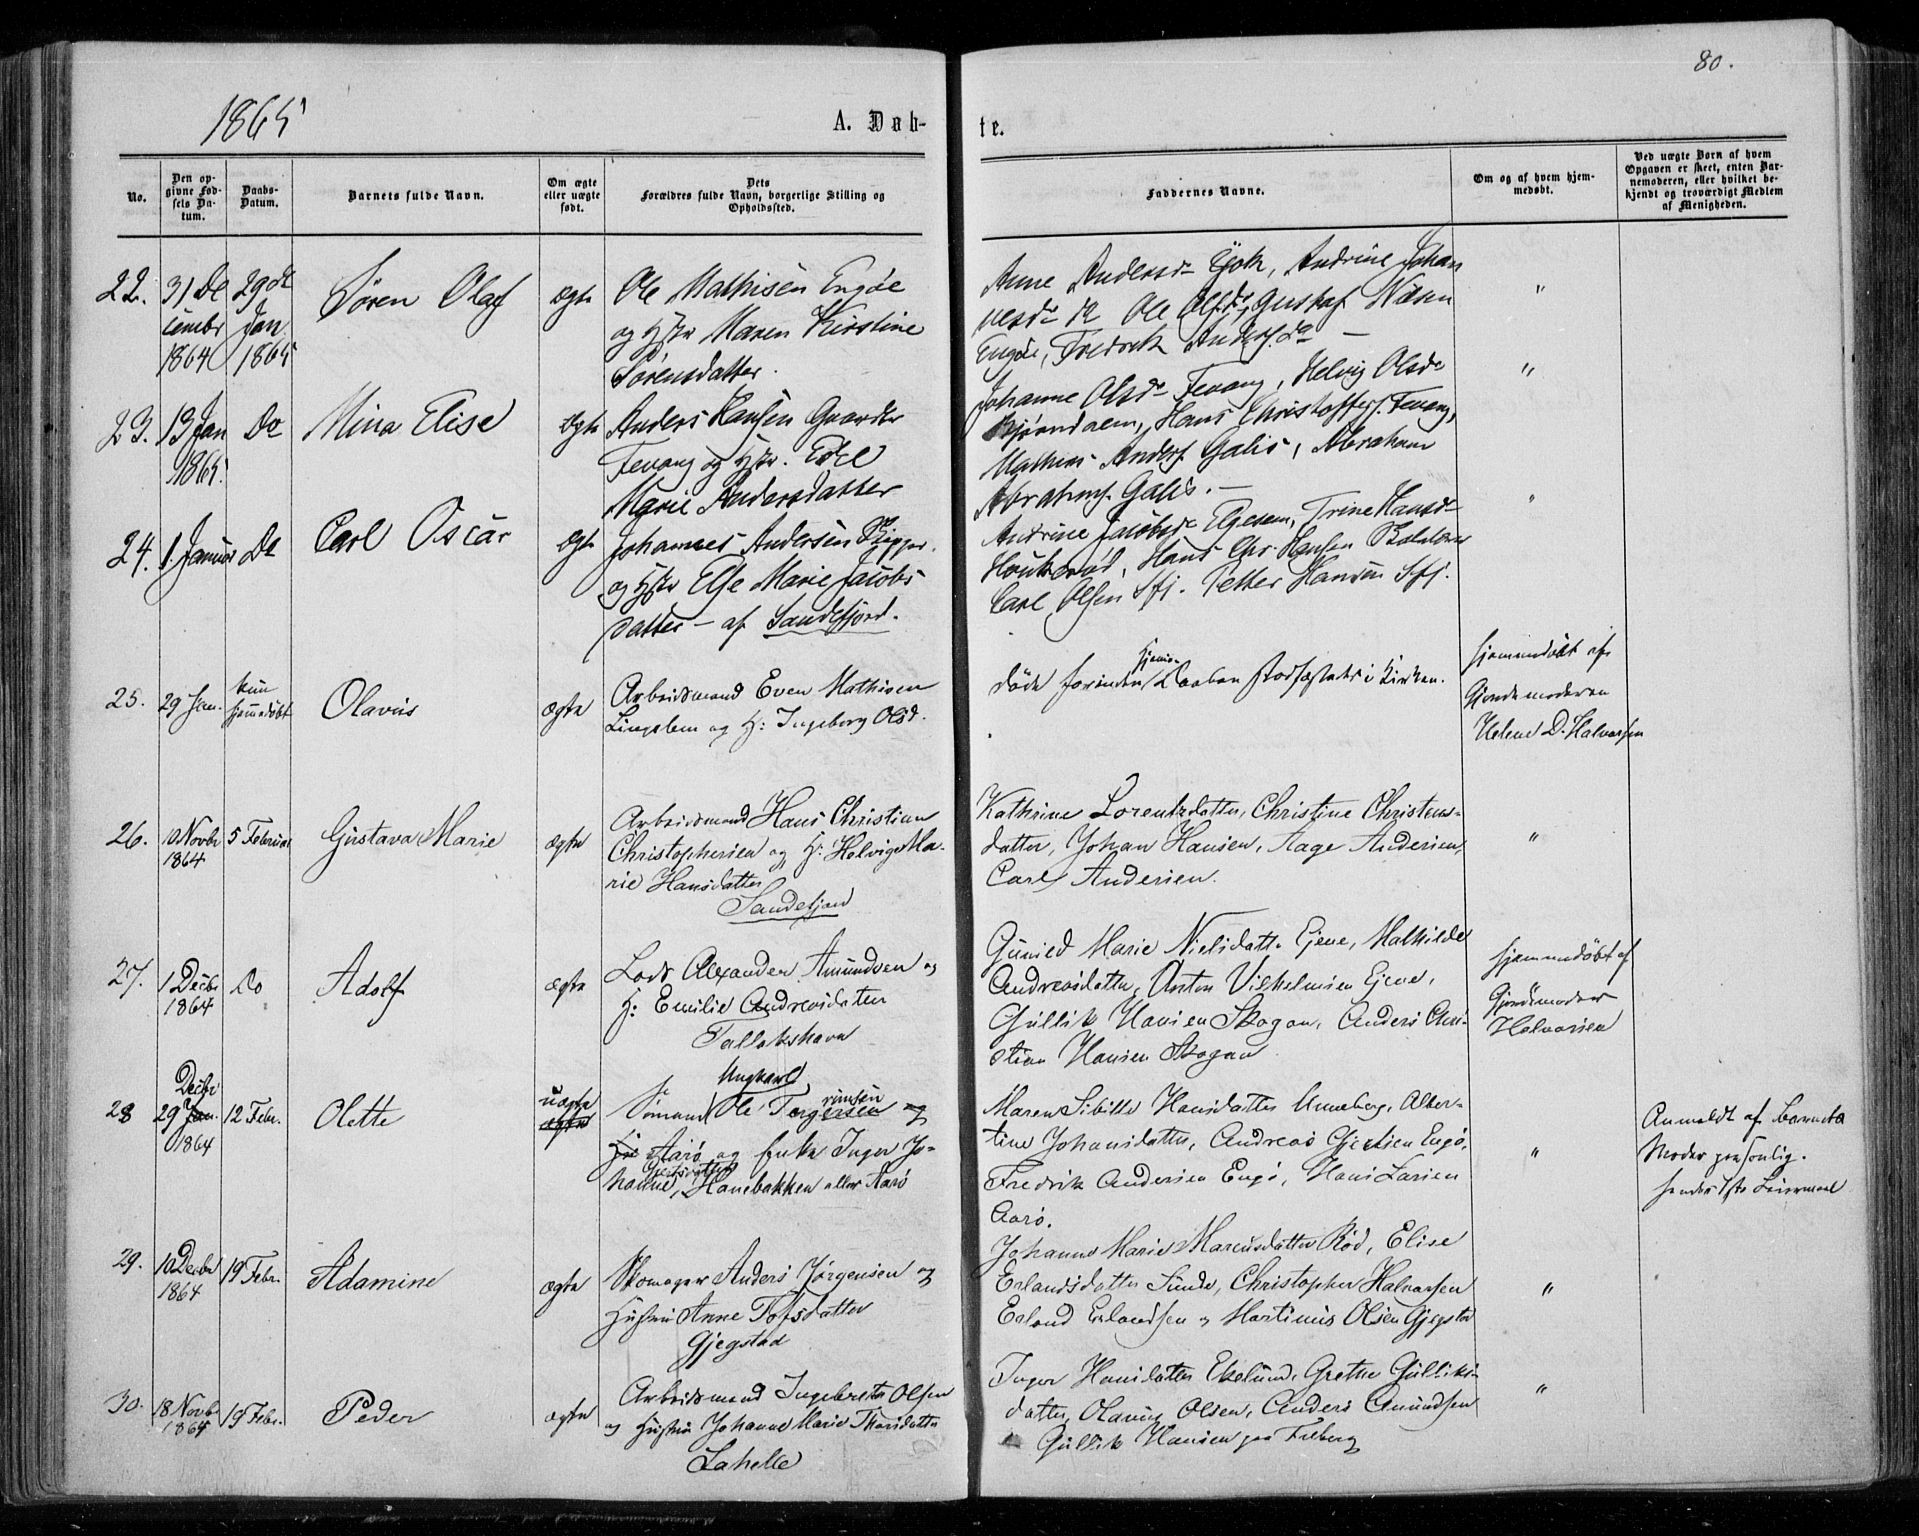 80.
1865
A. Døb-
te.
No.
Den op-
givne Fød-
sels Da-
tum.
Daabs-
Datum.
Barnets fulde Navn.
Om ægte
eller uægte
født.
Dets
Forældres fulde Navn, borgerlige Stilling og
Opholdssted.
Faddernes Navne.
Om og af hvem hjem-
medøbt.
Ved uægte Børn af hvem
Opgaven er skeet, enten Bar-
nemoderen, eller hvilket be-
kjendt og troværdigt Medlem
af Menigheden.
22.
31 De
cembr
1864
29de
Jan
1865
Søren Olaf
ægte
Ole Mathisen Engøe
og Hstr Maren Kirstine
Sørensdatter.
Anne Andersd Andrine Johan
nesd Ole Gustaf
Engøe, Fredrik
"
23.
13 Jan
1865
Do
Mina Elise
ægte
Anders Hansen Gaardbr
Fevang og Hstr. Edel
Marie Andersdatter
Johanne Olsd Fevang, Helvig Olsd
Bjørndalen, Hans Christoffers. Fevang,
Mathias Anders. Galis, Abraham
Abrahms. Galis. —
"
24.
1. Januar
Do
Carl Oscar
ægte
Johannes Andersen Skipper.
og Hstr Else Marie Jacobs
datter – af Sandefjord.
Andrine Jacobsd Elgesem, Trine Hansd
Haukerød, Hans Chr. Hansen
Carl Olsen Sfj. Petter Hansen Sfj.
"
25.
29 Jan.
kun
hjemmedøbt
Olavus
ægte
Arbeidsmand Even Mathisen
Lingelem og H: Ingeborg Olsd.
døde forinden Hjemme-Daaben stadfæstedes i Kirken.
hjemmedøbt af
Gjordemoderen
Helene D. Halvorsen
26.
Novbr
1864
5 Februar
Gustava Marie
ægte
Arbeidsmand Hans Christian
Christophersen og H: Helvig Ma-
rie Hansdatter
Sandefjord
Kathrine Lorentzdatter, Christine Christens-
datter, Johan Hansen, Aage Andersen,
Carl Andersen.
"
27.
1 Decbr
1864
Do
Adolf
ægte
Lods Alexander Amundsen og
H: Emilie Andreasdatter
Tallakshavn
Gunild Marie Nielsdatt. Gjene, Mathilde
Andreasdatter, Anton Vilhelmsen Ejene,
Gullik Hansen Skogan, Anders Chri-
stian Hansen Skogan
hjemmedøbt af
Gjordemoder
Halvorsen
28
Decbr
29 Jan.
1864
12 Febr.
Olette
uægte
ægte
Ungkarl
Sømand Ole Torgersen og
Aarø og Enke Inger Jo-
hanne, Hanebakken eller Aarø
Maren Sibille Hansdatter Unneberg, Alber-
tine Johansdatter, Andreas Gjertsen Engø,
Fredrik Andersen Engø, Hans Larsen
Aarø.
"
Anmeldt af Barnets
Moder personlig.
hendes 1ste Leiermaal
29.
10 Decbr
1864
19 Febr.
Adamine
ægte
Skomager Anders Jørgensen og
Hustru Anne Tofsdatter
Gjegstad
Johanne Marie Marcusdatter Rød, Elise
Erlandsdatter Sunde, Christopher Halvorsen
Erland Erlandsen og Martinus Olsen Gjegstad
"
30.
18 Novb
1864
19 Febr.
Peder
ægte
Arbeidsmand Ingebreth Olsen
og Hustru Johanne Marie Thorsdatter
Lahelle
Inger Hansdatter Ekelund, Grethe Gulliks-
datter, Olaus Olsen, Anders Amundsen
Gullik Hansen paa Freberg
"